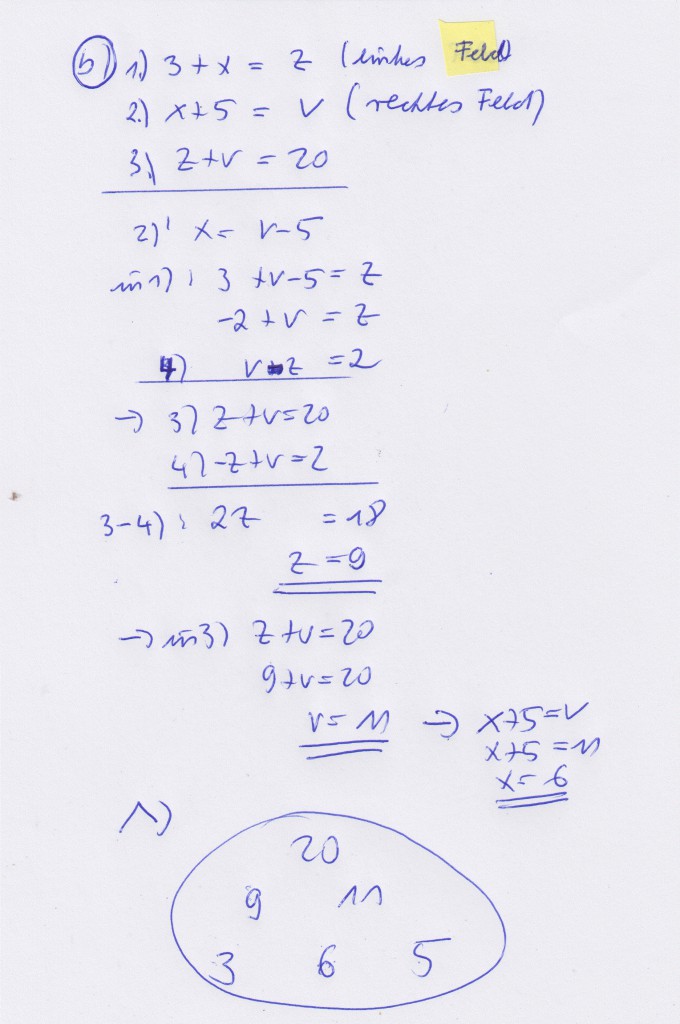 b) 1.) 3 + x = z (linkes Feld)
2.) x+5 = v (rechtes Feld)
3.) z+v = 20
2)' x = v-5
in 1): 3 +v-5 = z
-2 + v = z
4) v-z = 2
→ 3) z+v=20
4) -z+v=2
3-4): 2z = 18
z = 9
→ in 3) z+v=20
9+v=20
v = 11 → x+5=v
x+5=11
x=6
20
9 11
3 6 5